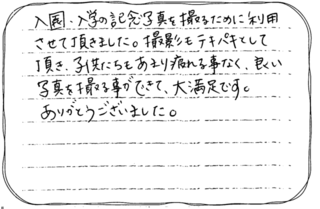 入園・入学の記念写真を撮るために利用
させて頂きました。撮影もテキパキとして
頂き、子供たちもあまり疲れる事なく、良い
写真を撮る事ができて、大満足です。
ありがとうございました。